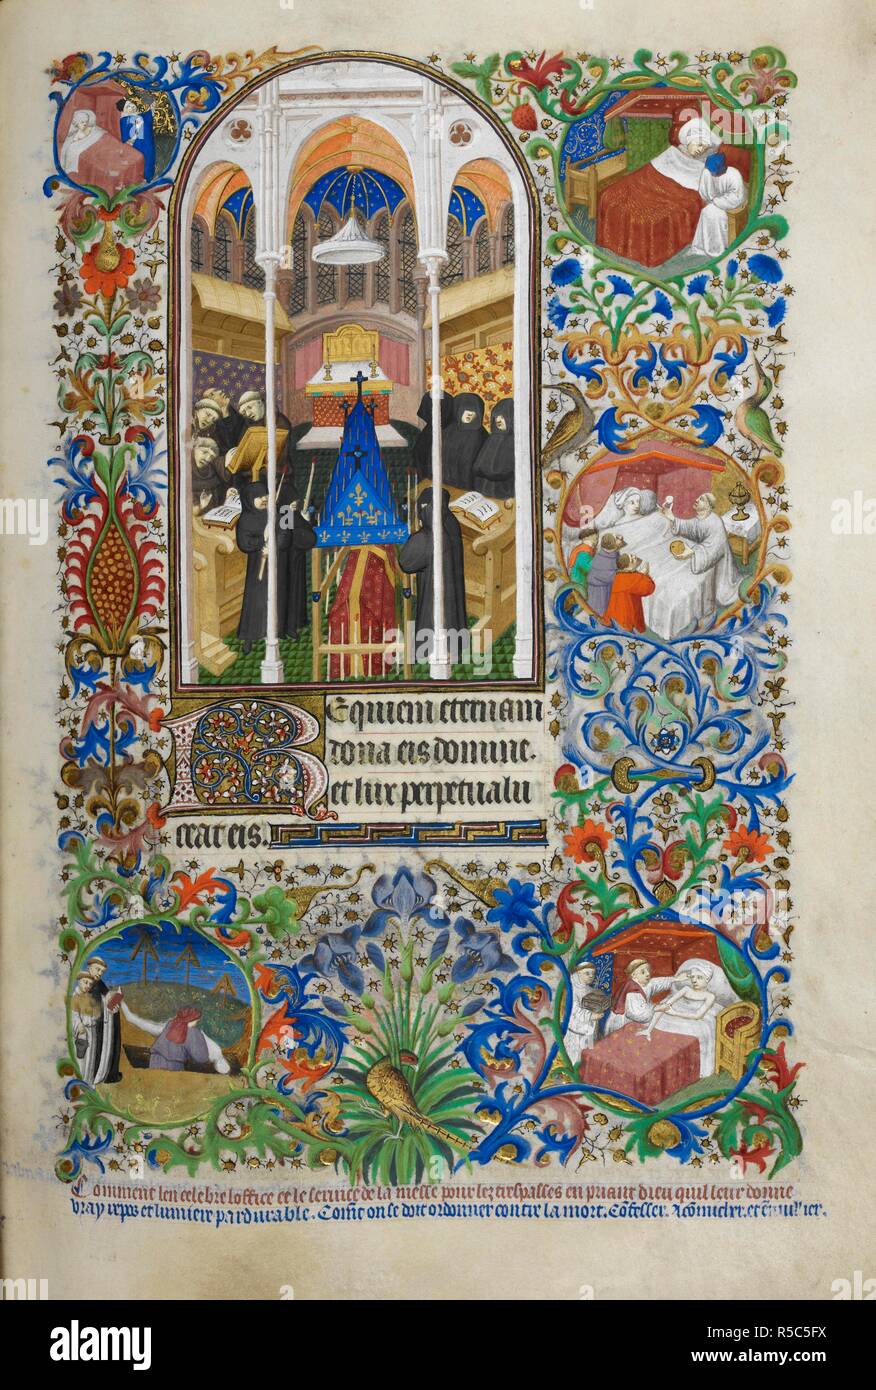 Requiem eternam
dona eis domine.
et lux perpetua lu
ceat eis.
Comment len celebre loffice et le service de la messe pour les trespasses en priant dieu quil leur donne
vray repos et lumiere pardurable. Coment on se doit ordonner contre la mort. Confesser.
alamy
Image ID: R5C5FX
www.alamy.com